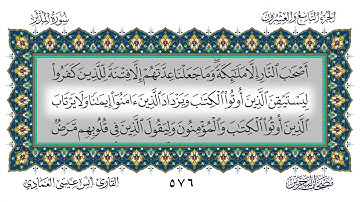 الجزء التاسع والعشرون
سورة المدثر
أَصْحَٰبَ ٱلنَّارِ إِلَّا مَلَٰٓئِكَةً ۙ وَمَا جَعَلْنَا عِدَّتَهُمْ إِلَّا فِتْنَةً لِّلَّذِينَ كَفَرُوا۟
لِيَسْتَيْقِنَ ٱلَّذِينَ أُوتُوا۟ ٱلْكِتَٰبَ وَيَزْدَادَ ٱلَّذِينَ ءَامَنُوٓا۟ إِيمَٰنًا ۙ وَلَا يَرْتَابَ
ٱلَّذِينَ أُوتُوا۟ ٱلْكِتَٰبَ وَٱلْمُؤْمِنُونَ ۙ وَلِيَقُولَ ٱلَّذِينَ فِى قُلُوبِهِم مَّرَضٌ
القارئ: أنس عيسى العمادي
٥٧٦